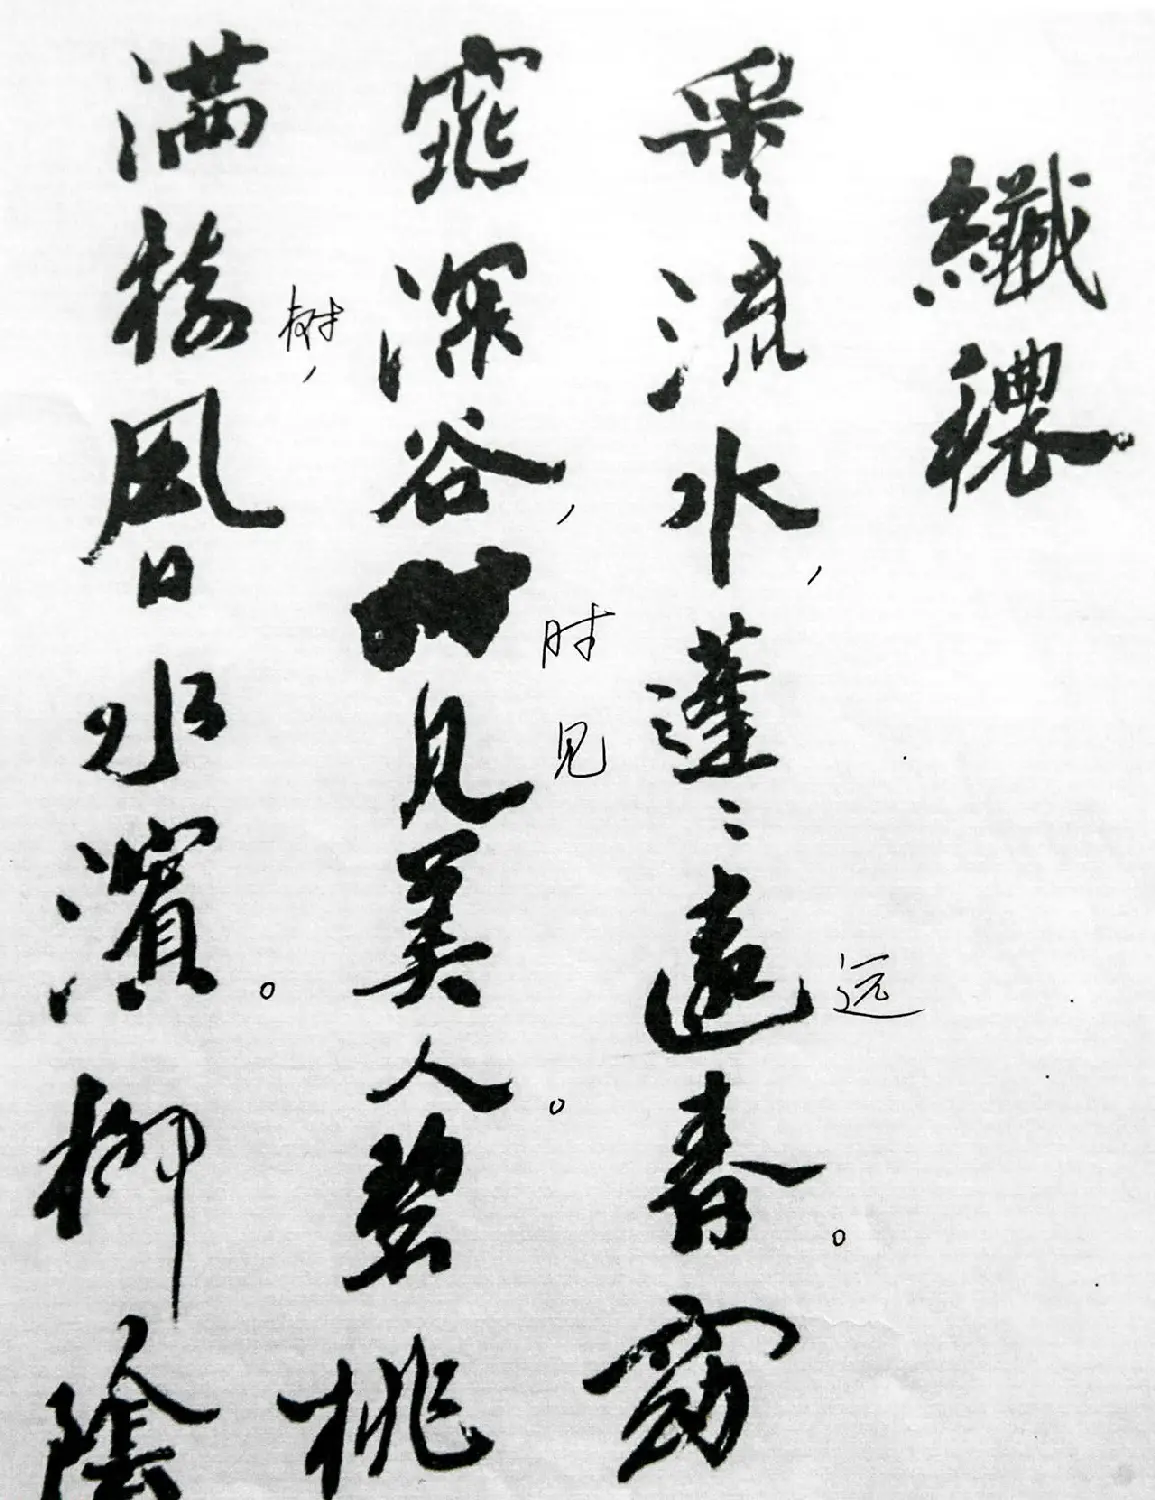 纖穠
采〻流水，蓬〻遠春。窈
窕深谷，見美人。碧桃
满樹，風日水濱。柳陰
远
时见
树，